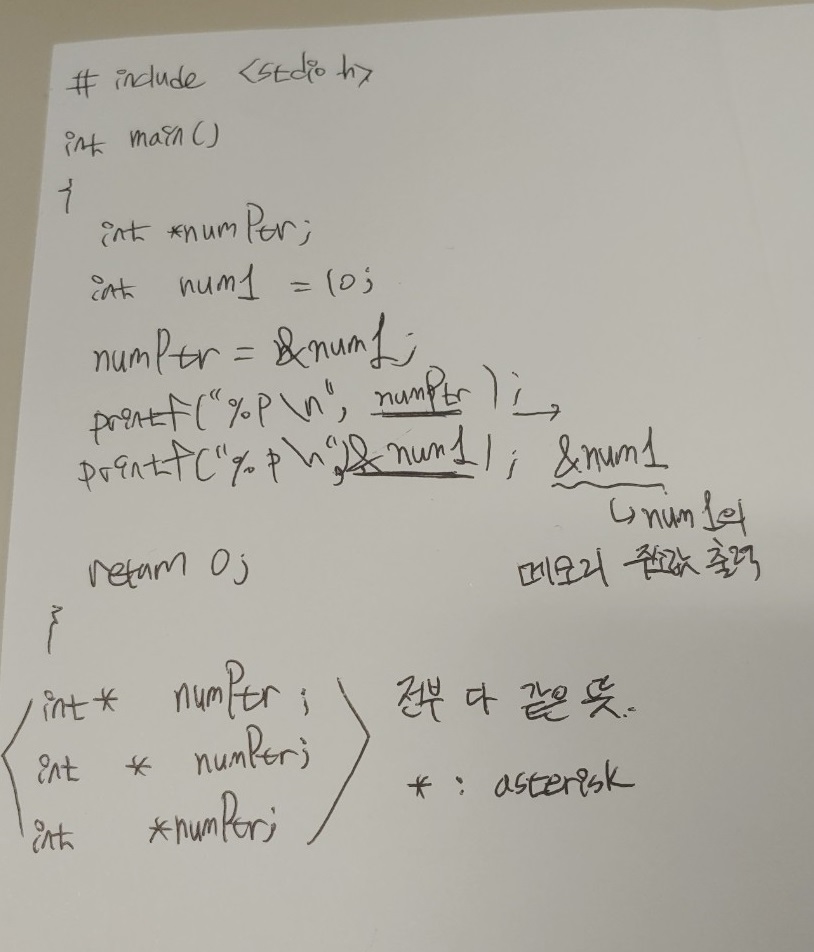 # include <stdio h>
int main()
{
int *numPtr;
int num1 = 10;
numPtr = &num1;
printf("%p\n", numPtr); →
printf("%p\n", &num1); &num1
↳ num1의
메모리 주솟값 출력
return 0;
}
int* numPtr; 전부 다 같은 뜻.
int * numPtr;
int *numPtr; * : asterisk